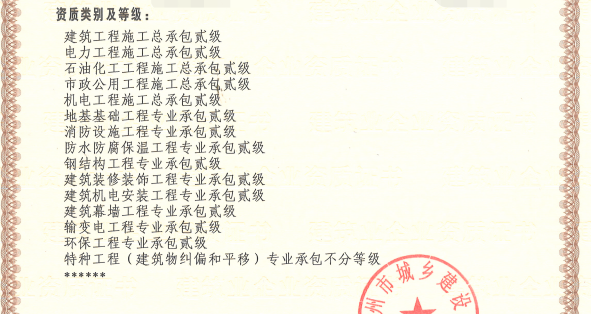 资质类别及等级：
建筑工程施工总承包贰级
电力工程施工总承包贰级
石油化工工程施工总承包贰级
市政公用工程施工总承包贰级
机电工程施工总承包贰级
地基基础工程专业承包贰级
消防设施工程专业承包贰级
防水防腐保温工程专业承包贰级
钢结构工程专业承包贰级
建筑装修装饰工程专业承包贰级
建筑机电安装工程专业承包贰级
建筑幕墙工程专业承包贰级
输变电工程专业承包贰级
环保工程专业承包贰级
特种工程（建筑物纠偏和平移）专业承包不分等级
******
州市城乡建设